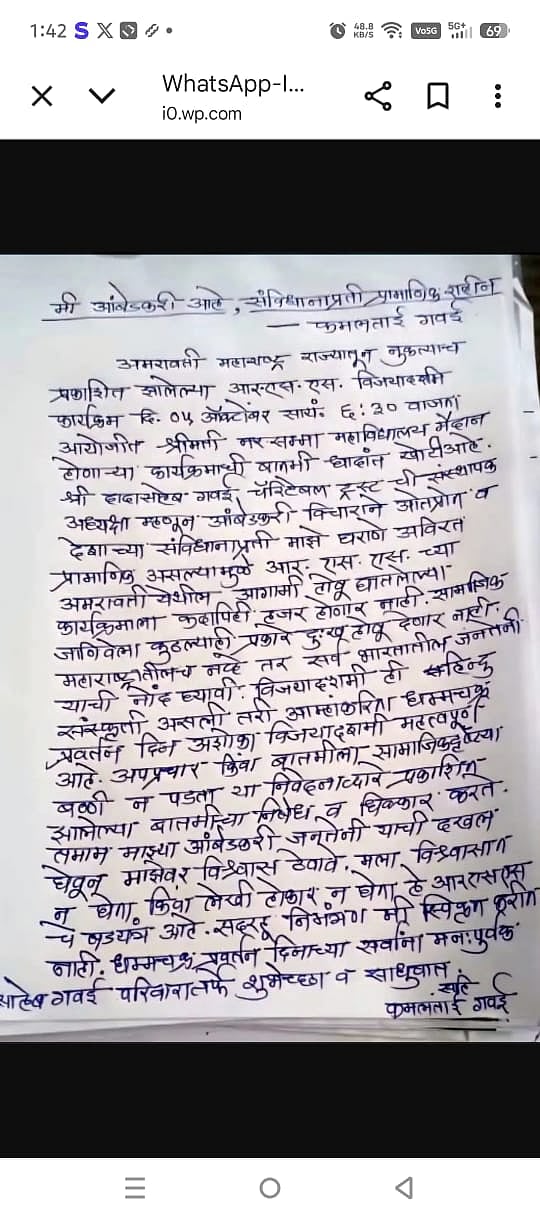 1:42
48.8 KB/S
Vo5G
5G+
69
WhatsApp-I...
i0.wp.com
मी आंबेडकरी आहे, संविधानाप्रती प्रामाणिक राहीन
— कमलताई गवई
अमरावती महाराष्ट्र राज्यातून नुकत्याच
प्रकाशित झालेल्या आर.एस.एस. विजयादशमी
कार्यक्रम दि. ०५ ऑक्टोंबर सायं: ६:३० वाजता
आयोजीत श्रीमती नरसम्मा महाविद्यालय मैदान
होणाऱ्या कार्यक्रमाची बातमी धादांत खोटी आहे.
श्री दादासाहेब गवई, चॅरिटेबल ट्रस्ट ची संस्थापक
अध्यक्षा म्हणून आंबेडकरी विचाराने ओतप्रोत व
देशाच्या संविधानाप्रती माझे घराणे अविरत
प्रामाणिक असल्यामुळे आर. एस. एस. च्या
अमरावती येथील आगामी होवू घातलेल्या
कार्यक्रमाला कदापिही हजर होणार नाही. सामाजिक
जाणिवेला कुठल्याही प्रकारे दुःख होवू देणार नाही.
महाराष्ट्रातीलच नव्हे तर सर्व भारतातील जनतेनी
याची नोंद घ्यावी. विजयादशमी ही हिन्दु
संस्कृती असली तरी आम्हाकरिता धम्मचक्र
प्रवर्तन दिन अशोका विजयादशमी महत्वपूर्ण
आहे. अपप्रचार किंवा बातमीला सामाजिकदृष्ट्या
बळी न पडता या निवेदनाद्वारे प्रकाशित
झालेल्या बातमीच्या निषेध व धिक्कार करते.
तमाम माझ्या आंबेडकरी जनतेनी याची दखल
घेवून माझेवर विश्वास ठेवावे. मला विश्वासात
न घेता किंवा लेखी होकार न घेता हे आरएसएस
चे षडयंत्र आहे. सदरहू निमंत्रण मी स्विकृत करीत
नाही. धम्मचक्र प्रवर्तन दिनाच्या सर्वांना मनःपुर्वक
साहेब गवई परिवारातर्फे शुभेच्छा व साधुवात.
सही
कमलताई गवई